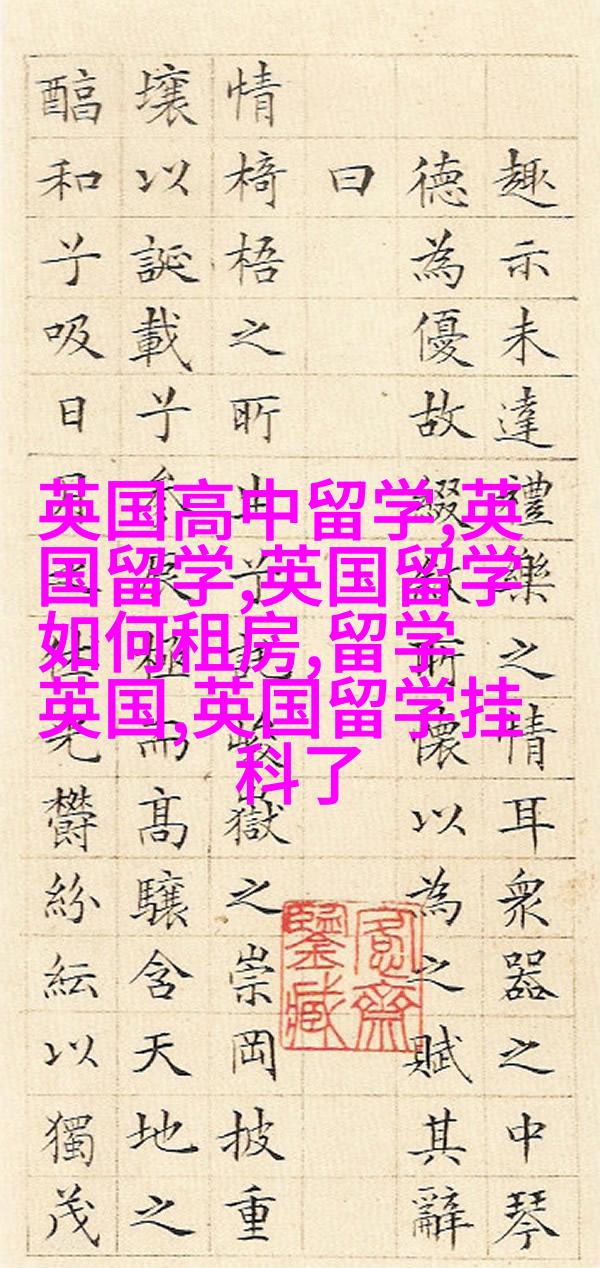 趣示未達禮樂之情耳衆器之中琴
德為優故綴敘所懷以為之賦其辭
曰
情椅梧之所生兮託峻嶽之崇岡披重
壤以誕載兮參辰極而高驤含天地之
醕和兮吸日月之休光欝紛紜以獨茂
英国高中留学,英
国留学,英国留学
如何租房,留学
英国,英国留学挂
科了